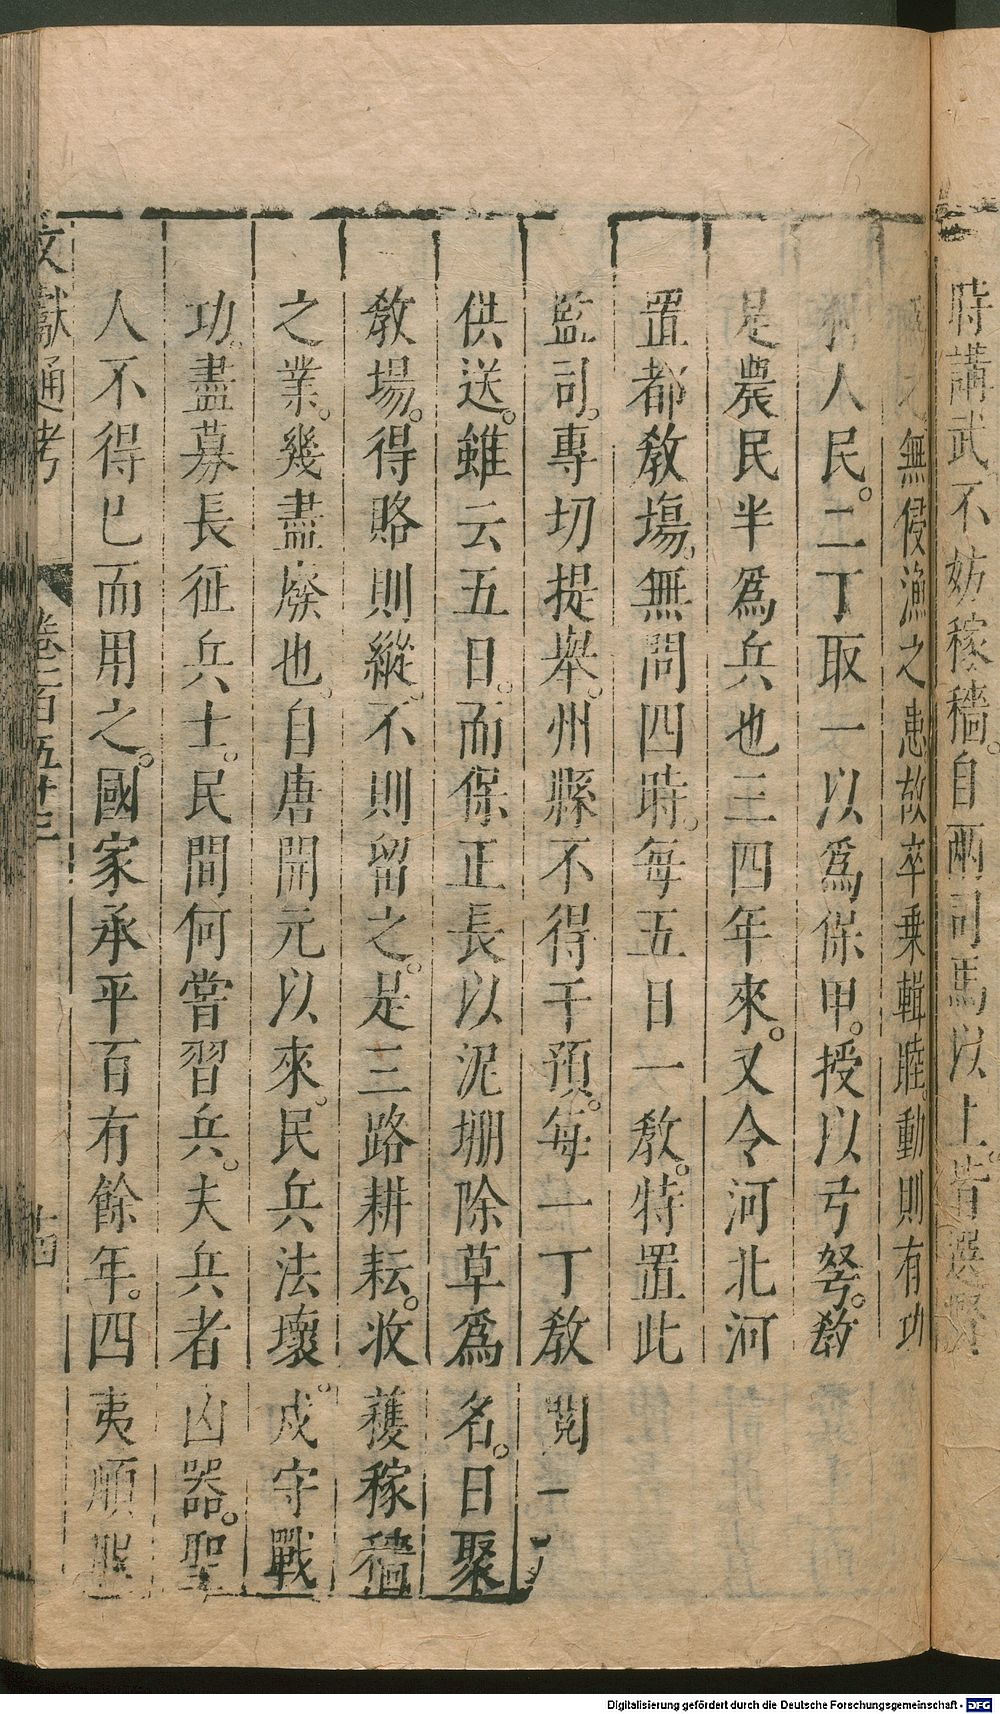 時講武不妨稼穡自兩司馬以上皆選賢
無侵漁之患故卒乗輯睦動則有功
人民二丁取一以爲保甲授以弓弩敎
是農民半爲兵也三四年來又令河北河
置都敎塲無問四時每五日一敎特置此
監司專切提舉州縣不得干預每一丁敎閱一
供送雖云五日而保正長以泥堋除草爲名日聚
敎場得賂則縱不則留之是三路耕耘收穫稼穡
之業幾盡廢也自唐開元以來民兵法壞戍守戰
功盡募長征兵士民間何嘗習兵夫兵者凶器聖
人不得已而用之國家承平百有餘年四夷順
文獻通考 卷一百五十三 十四
Digitalisierung gefördert durch die Deutsche Forschungsgemeinschaft - DFG